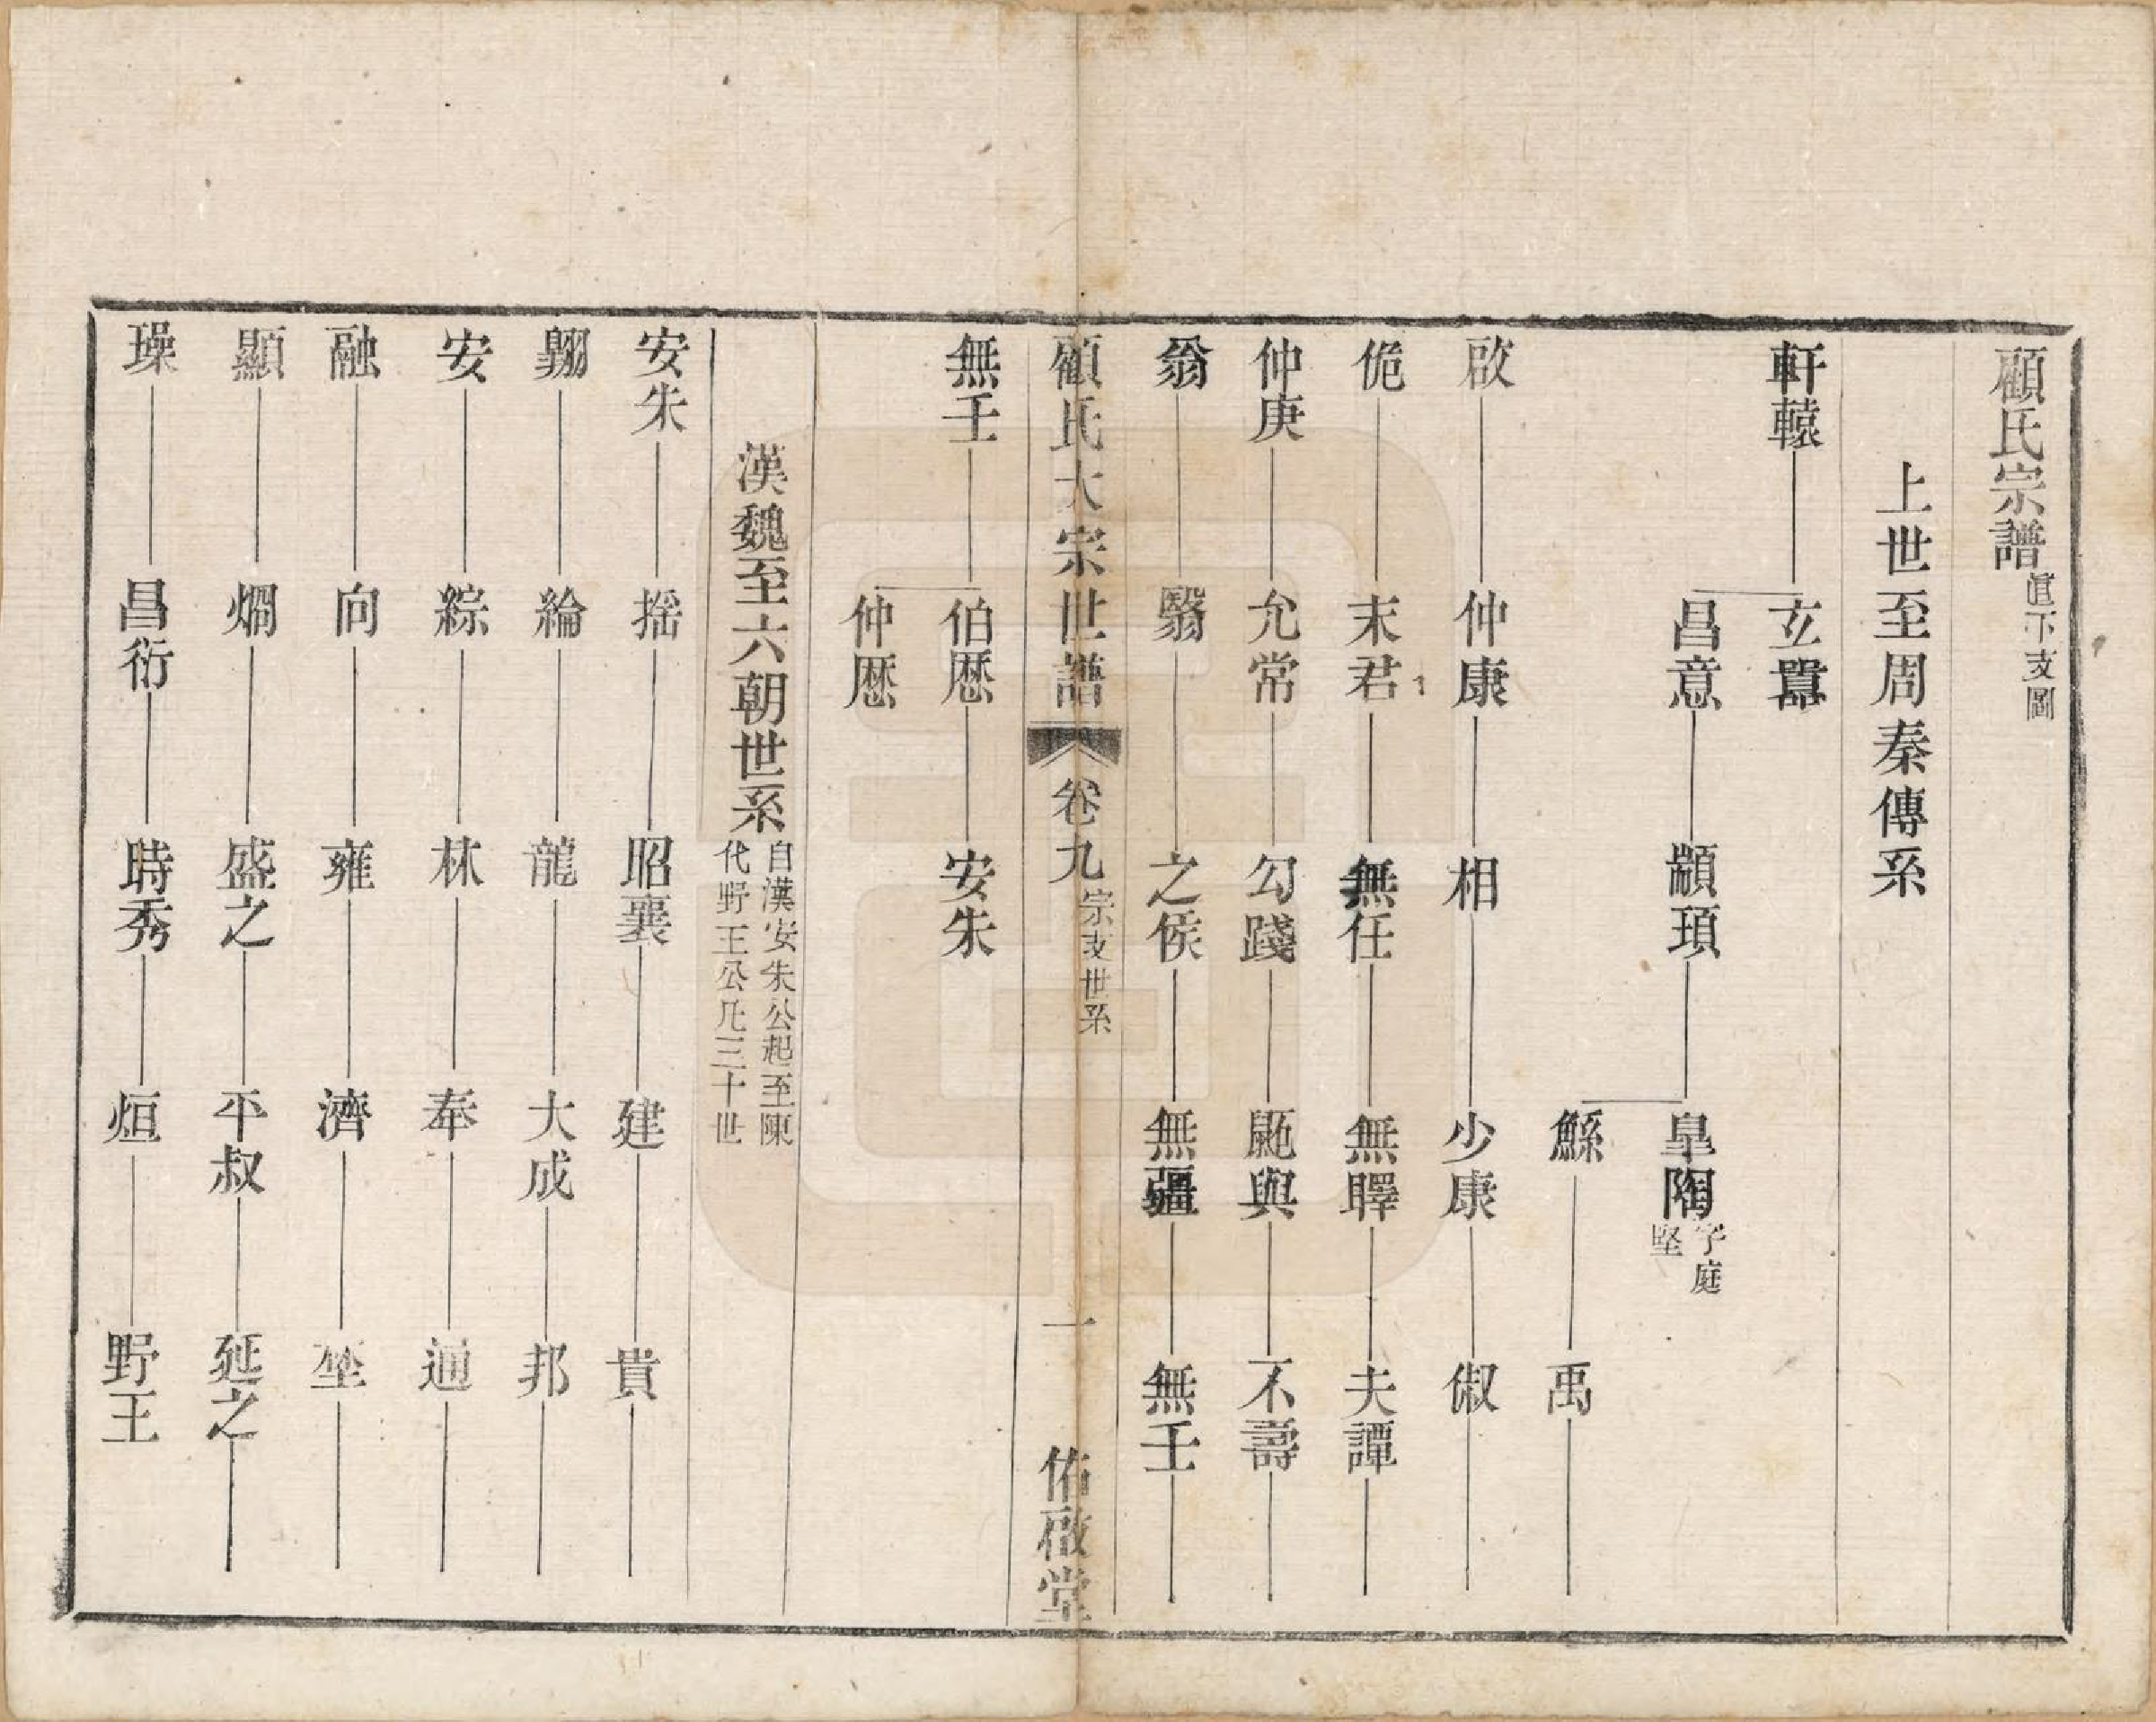 顧氏宗譜 直下支圖
上世至周秦傳系
軒轅 玄囂
昌意 顓頊 皐陶 字庭堅
鯀 禹
啟 仲康 相 少康 俶
佹 末君 無任 無睪 夫譚
仲庚 允常 勾踐 鼫與 不壽
翁 翳 之侯 無疆 無壬
顧氏大宗世譜 卷九 宗支世系 一 佑啟堂
無壬 伯厯 安朱
仲厯
漢魏至六朝世系 自漢安朱公起至陳
代野王公凡三十世
安朱 搖 昭襄 建 貴
翺 綸 龍 大成 邦
安 綜 林 奉 通
融 向 雍 濟 埜
顯 燗 盛之 平叔 延之
璪 昌衍 時秀 烜 野王